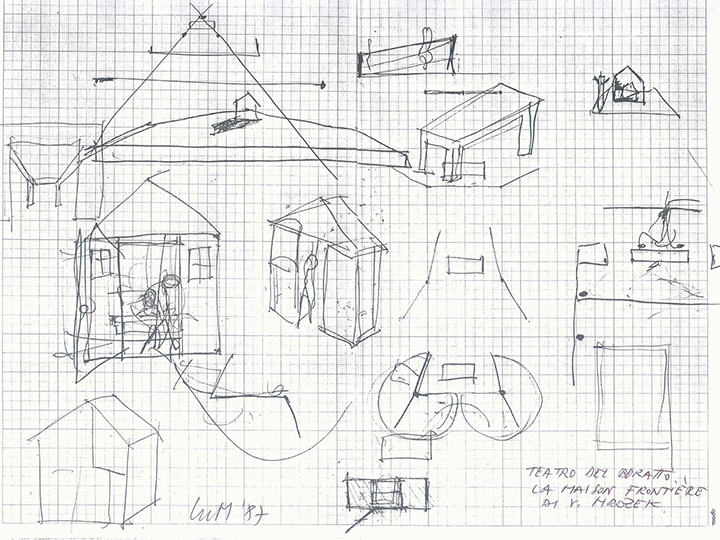 TEATRO DEL BURATTO
LA MAISON FRONTIÈRE
DI S. MROZEK
LUM '87